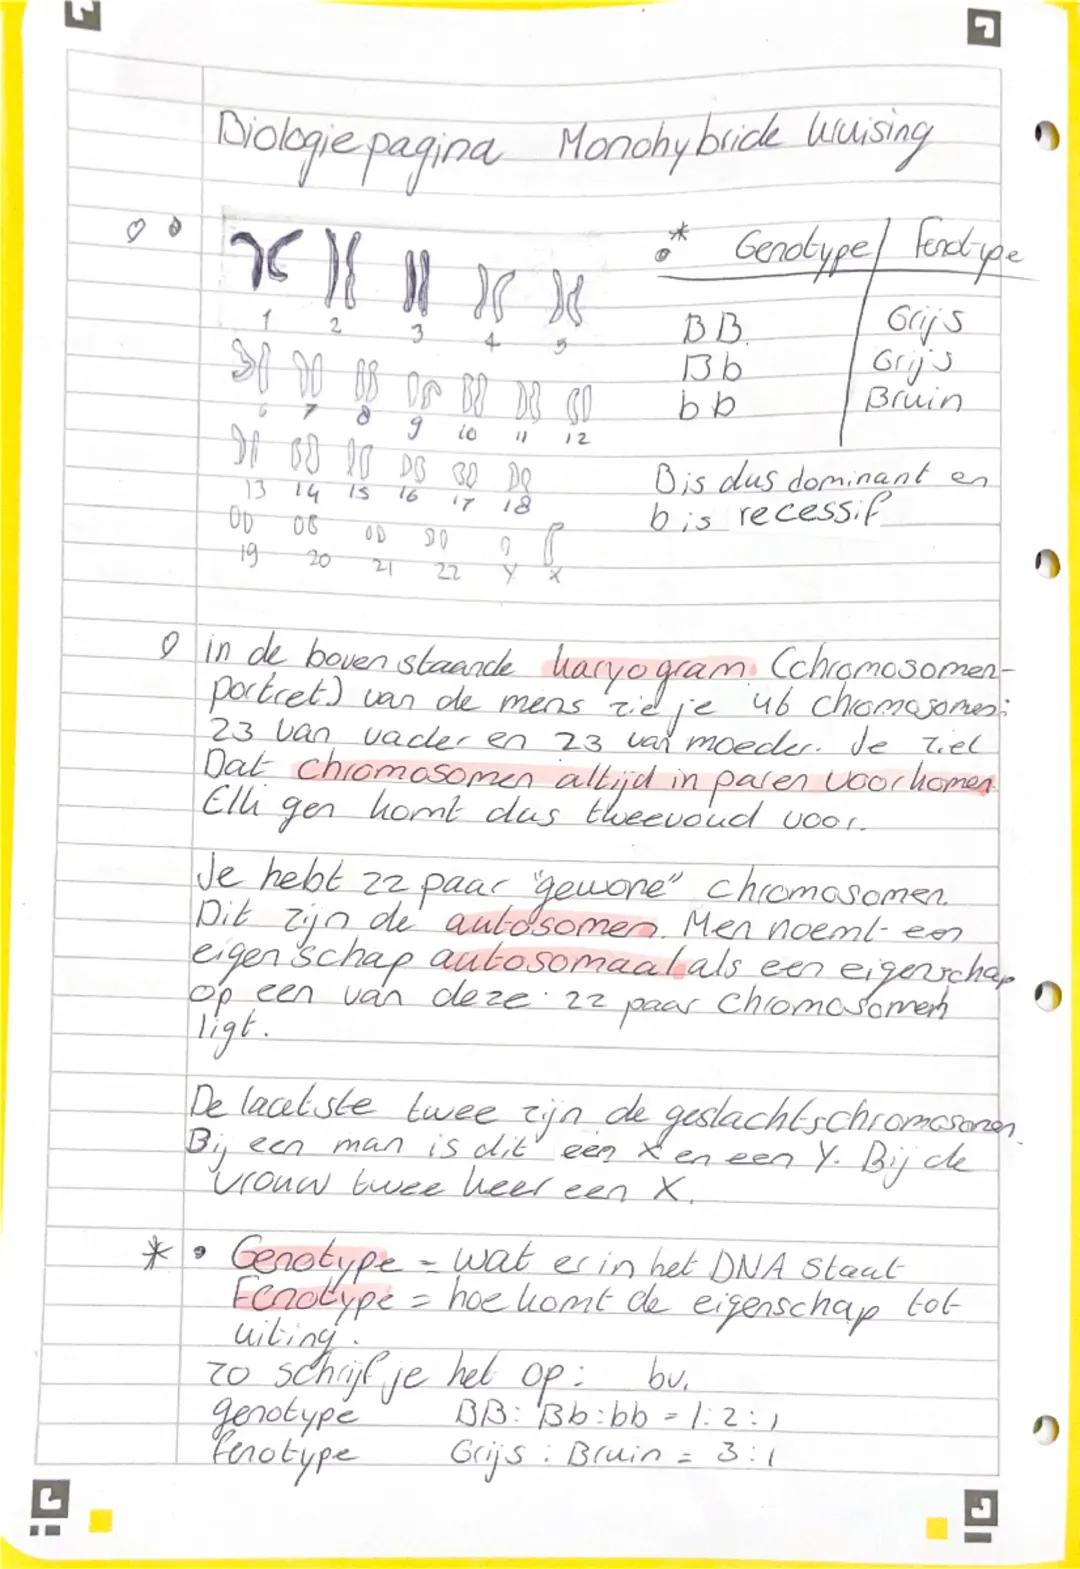 Biologie pagina Monohybride kruising
* Genotype / Fenotype
BB Grijs
Bb Grijs
bb Bruin
B is dus dominant en
b is recessif
1 2 3 4 5
6 7 8 9 10 11 12
13 14 15 16 17 18
19 20 21 22 Y X
in de bovenstaande karyogram (chromosomen-
portret) van de mens zie je 46 chromosomen:
23 van vader en 23 van moeder. Je ziet
Dat chromosomen altijd in paren voorkomen.
Elk gen komt dus tweevoud voor.
Je hebt 22 paar "gewone" chromosomen.
Dit zijn de autosomen. Men noemt een
eigenschap autosomaal als een eigenschap
op een van deze 22 paar chromosomen
ligt.
De laatste twee zijn de geslachtschromosomen.
Bij een man is dit een X en een Y. Bij de
vrouw twee keer een X.
* • Genotype = wat er in het DNA staat
Fenotype = hoe komt de eigenschap tot
uiting.
zo schrijf je het op: bv.
genotype BB:Bb:bb = 1:2:1
fenotype Grijs : Bruin = 3:1